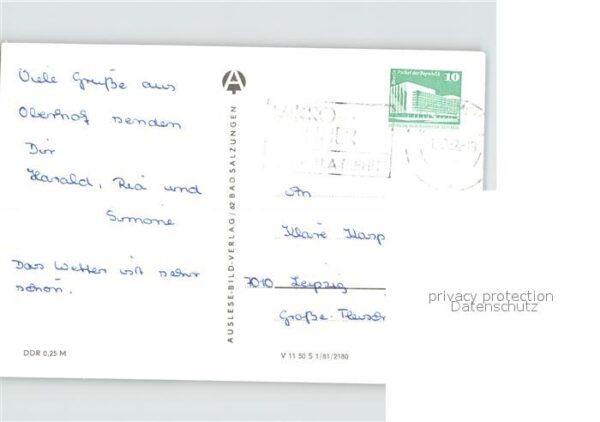 Viele Grüße aus
Oberhof senden
Dir
Harald, Ria und
Simone
Das Wetter ist sehr
schön.
DDR 0,25 M
AUSLESE-BILD-VERLAG/62 BAD SALZUNGEN
Palast der Republik
10
An
Kläre Kasp
7010 Leipzig
Große-
V 11 50 S 1/81/2180
privacy protection
Datenschutz